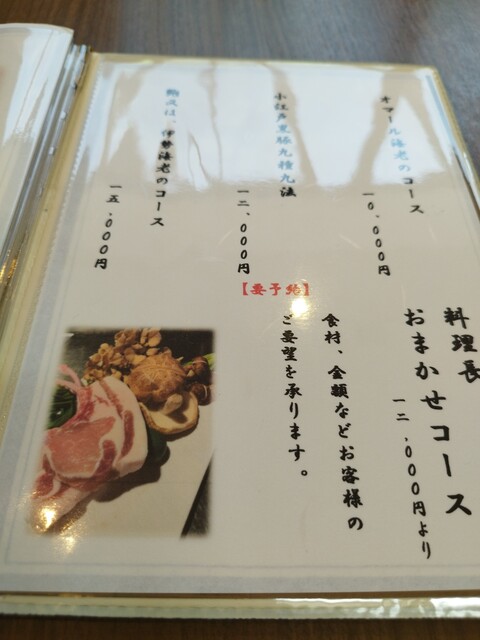 料理長
おまかせコース
一二,〇〇〇円より
食材、金額などお客様の
ご要望を承ります。
オマール海老のコース
一〇,〇〇〇円
小江戸黒豚九積九法
一二,〇〇〇円
【要予約】
鮑又は、伊勢海老のコース
一五,〇〇〇円